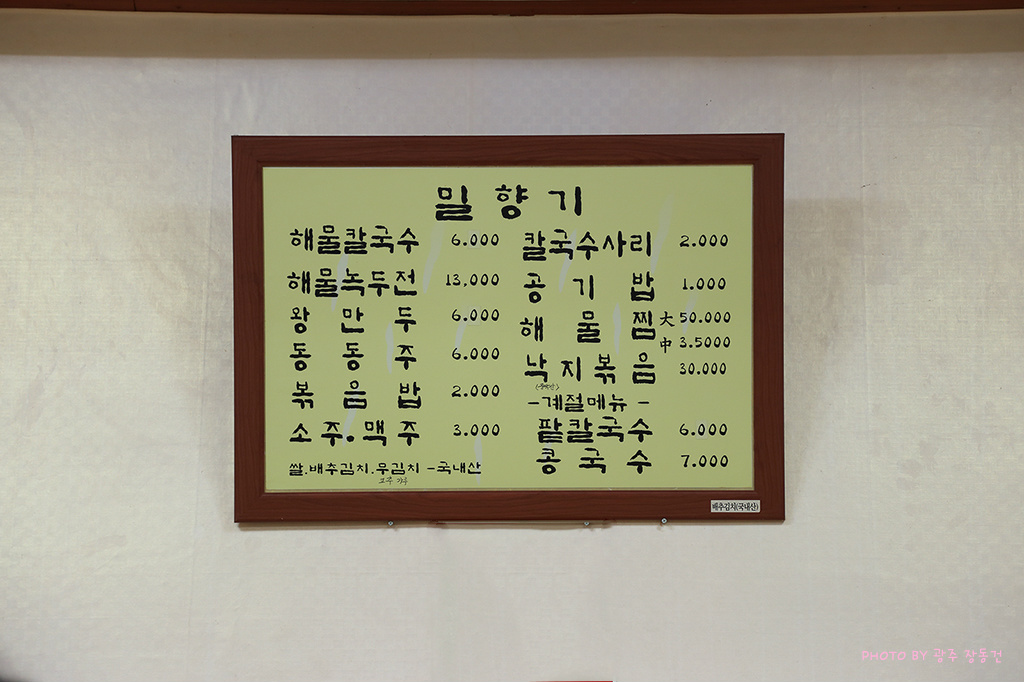 밀향기
해물칼국수 6.000
해물녹두전 13,000
왕만두 6.000
동동주 6.000
볶음밥 2.000
소주.맥주 3.000
쌀.배추김치.무김치 -국내산
고추가루
칼국수사리 2.000
공기밥 1.000
해물찜 大 50.000
中 3.5000
낙지볶음 30.000
(중국산)
-계절메뉴-
팥칼국수 6.000
콩국수 7.000
배추김치(국내산)
PHOTO BY 광주 장동건